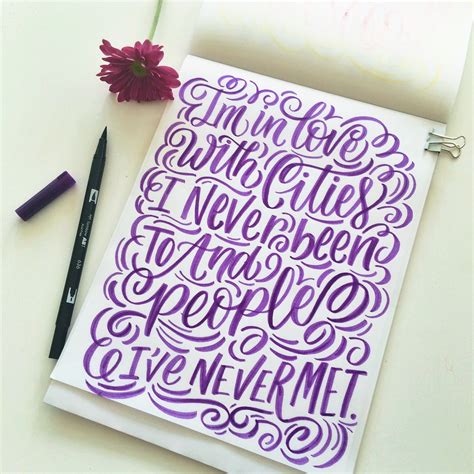 I'm in love
with Cities
I Never been
To And
people
I've NEVER MET.